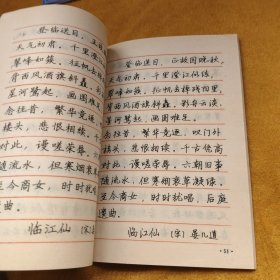 登临送目，正故
天气初肃。千里澄江似
翠峰如簇。征帆去
背西风酒旗斜矗，
星河鹭起，画图难
念往昔，繁华竞逐
楼头，悲恨相续。
，谩嗟荣辱。
随流水，但寒烟衰
至今商女，时时
遗曲。
临江仙 (宋)
登临送目，正故国晚秋，
天气初肃。千里澄江似练，
翠峰如簇。征帆去棹残阳里，
背西风酒旗斜矗，彩舟云淡，
星河鹭起，画图难足。
念往昔，繁华竞逐，叹门外
楼头，悲恨相续。千古凭高
对此，谩嗟荣辱。六朝旧事
随流水，但寒烟衰草凝绿。
至今商女，时时犹唱，后庭
遗曲。
临江仙 (宋) 晏几道
·51·